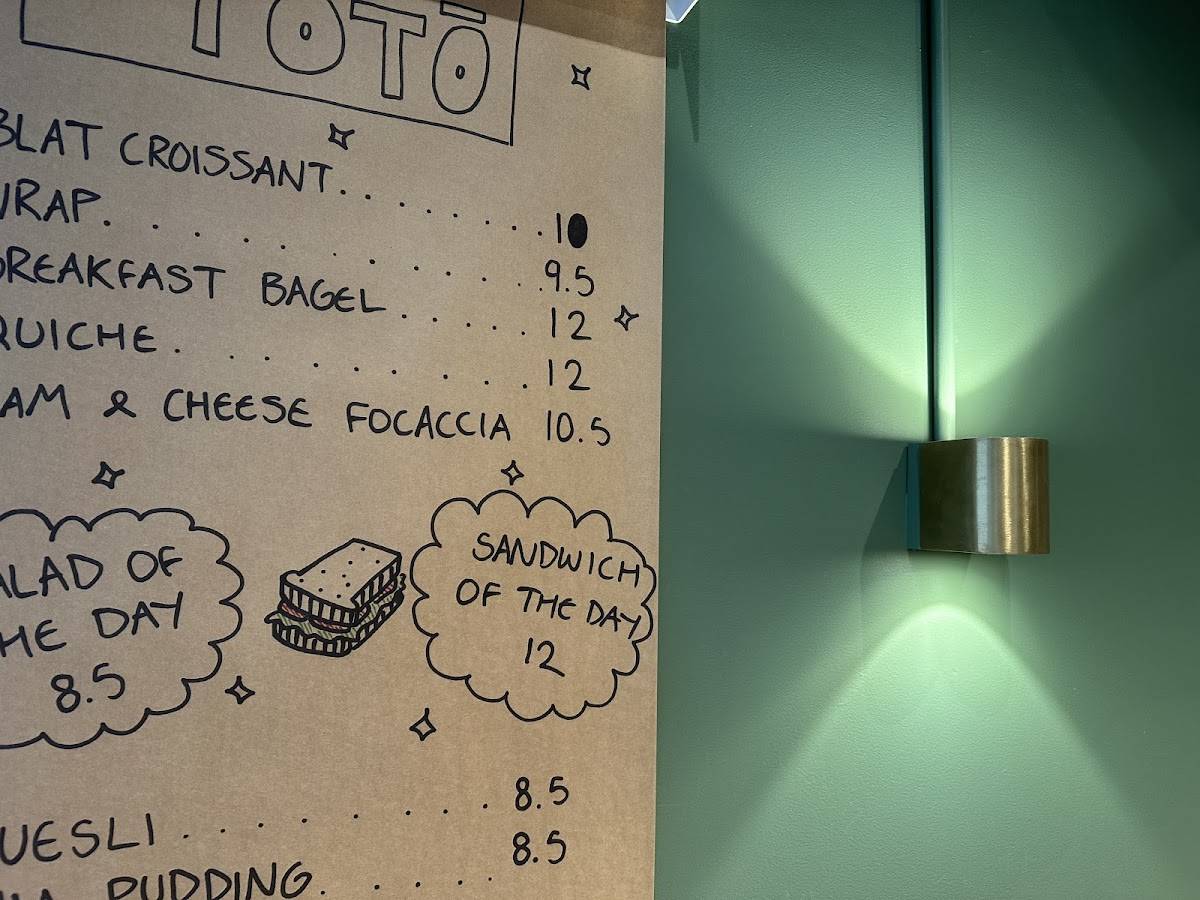 TOTŌ
BLAT CROISSANT........10
WRAP.............9.5
BREAKFAST BAGEL......12
QUICHE........12
AM & CHEESE FOCACCIA 10.5
ALAD OF
HE DAY
8.5
SANDWICH
OF THE DAY
12
UESLI........8.5
PUDDING.....8.5